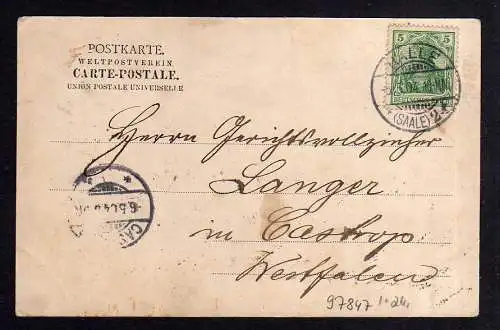 POSTKARTE.
WELTPOSTVEREIN.
CARTE-POSTALE.
UNION POSTALE UNIVERSELLE
5 5
HALLE
(SAALE) 2
Herrn Gerichtsvollzieher
Langer
in Castrop
Westfalen
CAS
97847